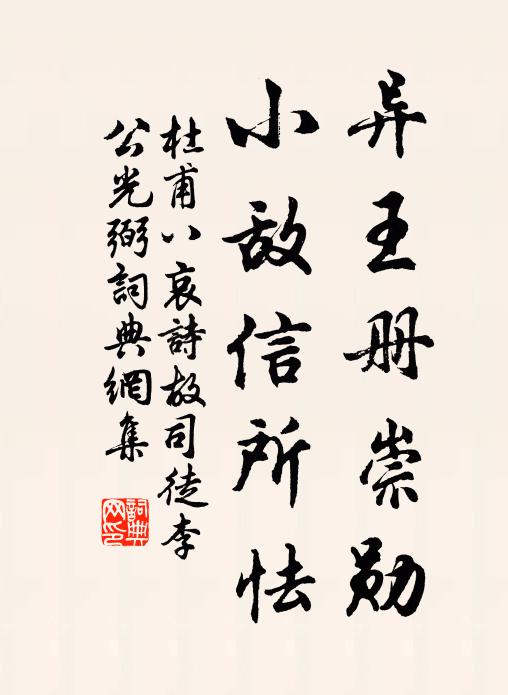 异王册崇勋
小敌信所怯
杜甫八哀詩故司徒李
公光弼詞典網集
詞典网印